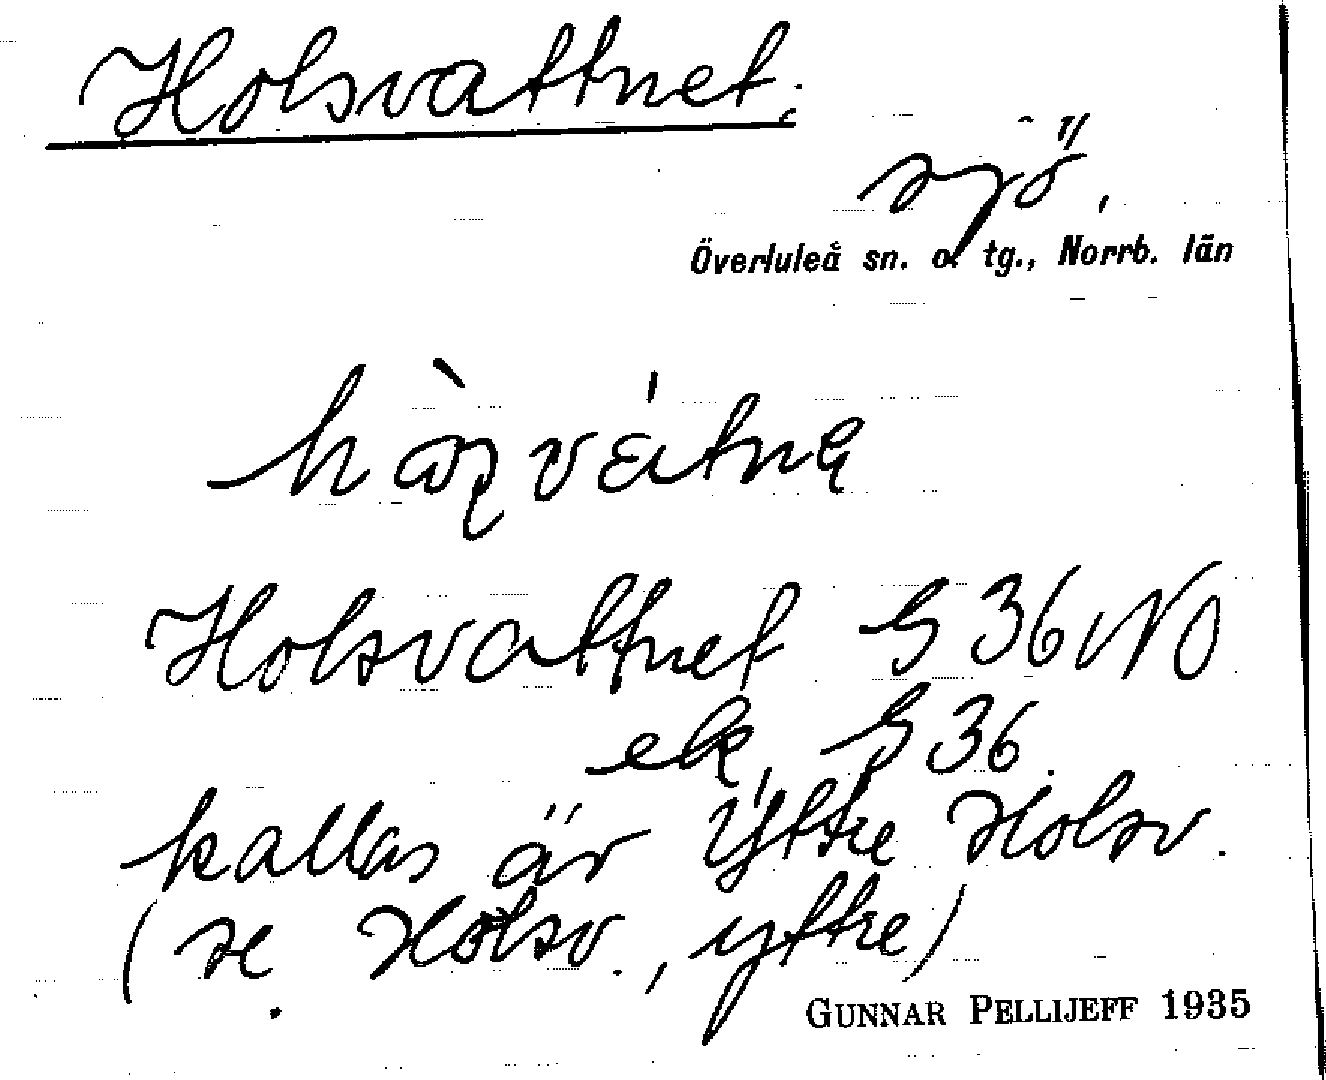 Holsvattnet;
sjö,
Överluleå sn. o. tg., Norrb. län
Holsvattnet G 36 NO
ek. G 36.
kallas är Yttre Holsv.
(se Holsv., yttre)
GUNNAR PELLIJEFF 1935